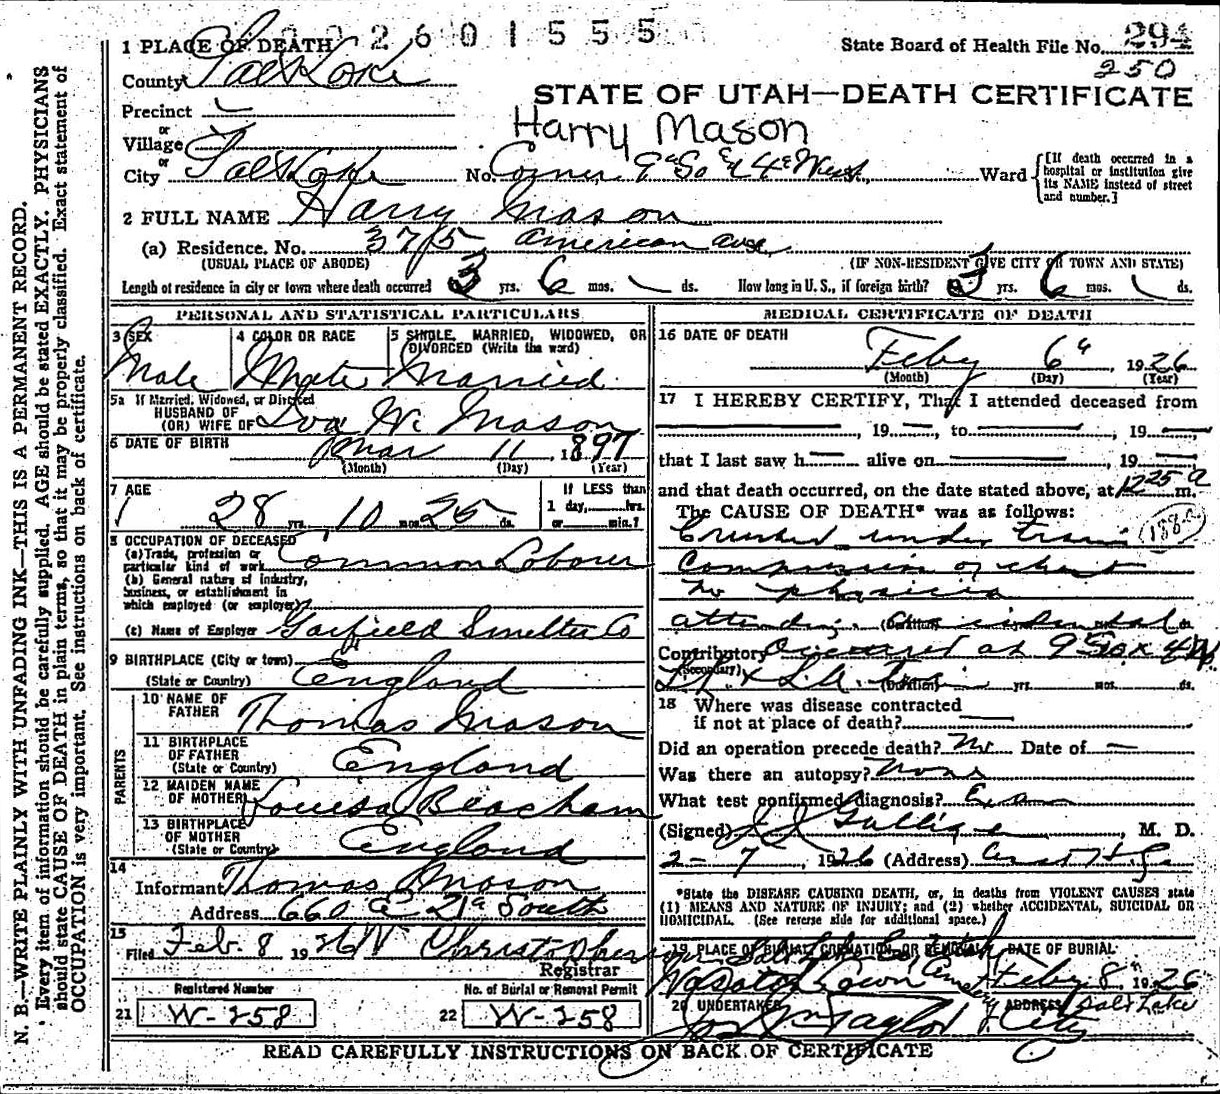 2601555
1 PLACE OF DEATH
State Board of Health File No. 294
County Salt Lake
250
STATE OF UTAH—DEATH CERTIFICATE
Precinct
or
Harry Mason
Village
or
City Salt Lake No. Corner 9th So & 4th West Ward
[If death occurred in a hospital or institution give its NAME instead of street and number.]
2 FULL NAME Harry Mason
(a) Residence. No. 3715 American Ave
(USUAL PLACE OF ABODE) (IF NON-RESIDENT GIVE CITY OR TOWN AND STATE)
Length of residence in city or town where death occurred 3 yrs. 6 mos. ds. How long in U. S., if foreign birth? 3 yrs. 6 mos. ds.
PERSONAL AND STATISTICAL PARTICULARS
3 SEX
Male
4 COLOR OR RACE
White
5 SINGLE, MARRIED, WIDOWED, OR DIVORCED (Write the word)
Married
5a If Married, Widowed, or Divorced
HUSBAND OF
(OR) WIFE OF Iva W. Mason
6 DATE OF BIRTH Mar 11 1897
(Month) (Day) (Year)
7 AGE
28 yrs. 10 mos. 25 ds.
If LESS than
1 day, hrs.
or min.?
8 OCCUPATION OF DECEASED
(a) Trade, profession or
particular kind of work Common Laborer
(b) General nature of industry,
business, or establishment in
which employed (or employer)
(c) Name of Employer Garfield Smelter Co
9 BIRTHPLACE (City or town)
(State or Country) England
PARENTS
10 NAME OF
FATHER Thomas Mason
11 BIRTHPLACE
OF FATHER
(State or Country) England
12 MAIDEN NAME
OF MOTHER Louisa Beacham
13 BIRTHPLACE
OF MOTHER
(State or Country) England
14
Informant Thomas Mason
Address 660 E 21st South
15
Filed Feb. 8 1926 W Christopherson
Registrar
Registered Number
21 W-258
No. of Burial or Removal Permit
22 W-258
MEDICAL CERTIFICATE OF DEATH
16 DATE OF DEATH
Feby 6th 1926
(Month) (Day) (Year)
17 I HEREBY CERTIFY, That I attended deceased from
, 19 , to , 19
that I last saw h alive on , 19
and that death occurred, on the date stated above, at 12 25 a m.
The CAUSE OF DEATH* was as follows:
Crushed under train
188
Compression of chest
No physician
attending. (Duration) Accidental ds.
Contributory Occurred at 9 So x 4 W
(Secondary) (Duration) yrs. mos. ds.
18 Where was disease contracted
if not at place of death?
Did an operation precede death? No Date of
Was there an autopsy? None
What test confirmed diagnosis? Exam
(Signed) , M. D.
2-7, 1926 (Address)
*State the DISEASE CAUSING DEATH, or, in deaths from VIOLENT CAUSES state
(1) MEANS AND NATURE OF INJURY; and (2) whether ACCIDENTAL, SUICIDAL OR
HOMICIDAL. (See reverse side for additional space.)
19 PLACE OF BURIAL, CREMATION, OR REMOVAL DATE OF BURIAL
Salt Lake
Wasatch Lawn Cemetery Feby 8th 1926
20 UNDERTAKER ADDRESS Salt Lake
Jos Wm Taylor City
READ CAREFULLY INSTRUCTIONS ON BACK OF CERTIFICATE
N. B.—WRITE PLAINLY WITH UNFADING INK—THIS IS A PERMANENT RECORD.
Every item of information should be carefully supplied. AGE should be stated EXACTLY. PHYSICIANS
should state CAUSE OF DEATH in plain terms, so that it may be properly classified. Exact statement of
OCCUPATION is very important. See instructions on back of certificate.